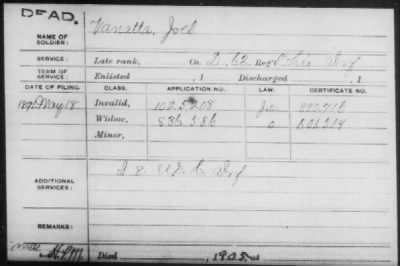 DEAD.
NAME OF SOLDIER: Vanatta, Joel
SERVICE: Late rank, Co. D, 62 Reg't Ohio Inf
TERM OF SERVICE: Enlisted , 1 Discharged , 1
DATE OF FILING. CLASS. APPLICATION NO. LAW. CERTIFICATE NO.
May 18 Invalid, 1025208
Widow, 836.586
Minor,
ADDITIONAL SERVICES: I 8 Inf
REMARKS:
Died , 1905, at